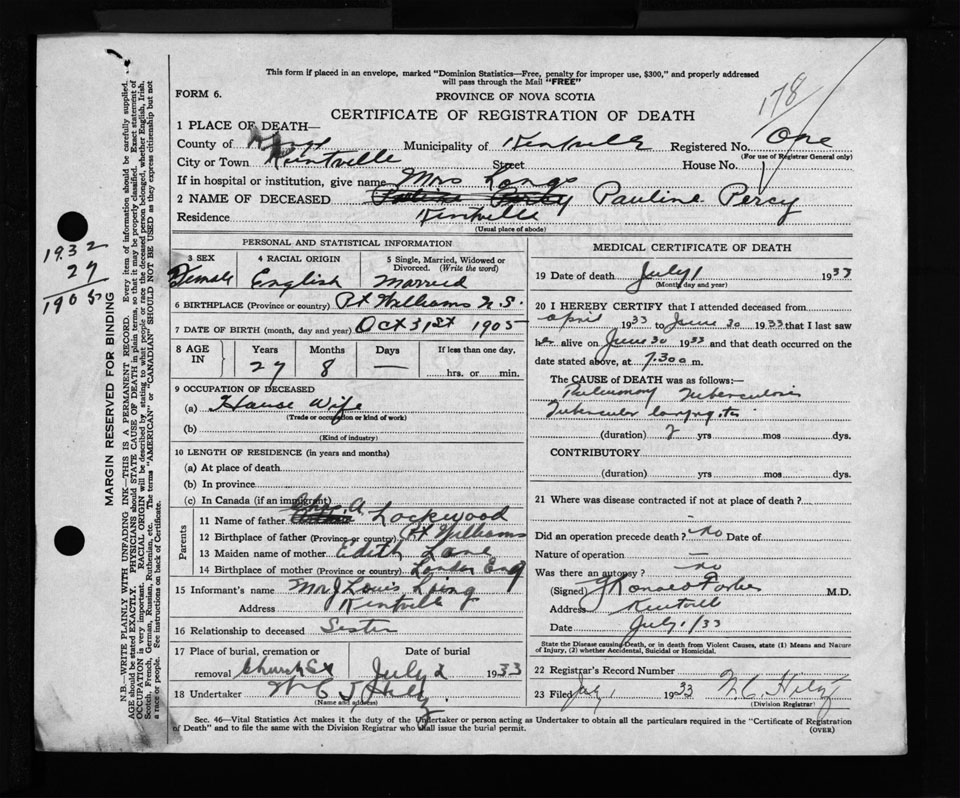 This form if placed in an envelope, marked "Dominion Statistics—Free, penalty for improper use, $300," and properly addressed
will pass through the Mail "FREE"
FORM 6.
PROVINCE OF NOVA SCOTIA
178
CERTIFICATE OF REGISTRATION OF DEATH
1 PLACE OF DEATH—
County of Kings Municipality of Kentville Registered No. One
(For use of Registrar General only)
City or Town Kentville Street House No.
If in hospital or institution, give name Mrs
2 NAME OF DECEASED Pauline Percy
Residence Kentville
(Usual place of abode)
PERSONAL AND STATISTICAL INFORMATION
3 SEX 4 RACIAL ORIGIN 5 Single, Married, Widowed or
Divorced. (Write the word)
Female English Married
6 BIRTHPLACE (Province or country) Pt Williams N.S.
7 DATE OF BIRTH (month, day and year) Oct 31st 1905
8 AGE IN Years Months Days If less than one day,
27 8 — hrs. or min.
9 OCCUPATION OF DECEASED
(a) House Wife
(Trade or occupation or kind of work)
(b)
(Kind of industry)
10 LENGTH OF RESIDENCE (in years and months)
(a) At place of death
(b) In province
(c) In Canada (if an immigrant)
Parents
11 Name of father A Lockwood
12 Birthplace of father (Province or country) Pt Williams
13 Maiden name of mother Edith Lane
14 Birthplace of mother (Province or country) London Eng
15 Informant's name Mrs Louis
Address Kentville
16 Relationship to deceased Sister
17 Place of burial, cremation or Date of burial
removal Church St July 2 1933
18 Undertaker
(Name and address)
MEDICAL CERTIFICATE OF DEATH
19 Date of death July 1 1933
(Month, day and year)
20 I HEREBY CERTIFY that I attended deceased from
April 1933 to June 30 1933 that I last saw
her alive on June 30 1933 and that death occurred on the
date stated above, at 7.30 a m.
The CAUSE of DEATH was as follows:—
Pulmonary Tuberculosis
Tubercular laryngitis
(duration) 2 yrs mos dys.
CONTRIBUTORY
(duration) yrs mos dys.
21 Where was disease contracted if not at place of death?
Did an operation precede death? no Date of
Nature of operation —
Was there an autopsy? no
(Signed) Forbes M.D.
Address Kentville
Date July 1/33
State the Disease causing Death, or in death from Violent Causes, state (1) Means and Nature
of Injury, (2) whether Accidental, Suicidal or Homicidal.
22 Registrar's Record Number
23 Filed July 1 1933
(Division Registrar)
Sec. 46—Vital Statistics Act makes it the duty of the Undertaker or person acting as Undertaker to obtain all the particulars required in the "Certificate of Registration
of Death" and to file the same with the Division Registrar who shall issue the burial permit.
(OVER)
1932
27
1905
MARGIN RESERVED FOR BINDING
N.B.—WRITE PLAINLY WITH UNFADING INK—THIS IS A PERMANENT RECORD. Every item of information should be carefully supplied.
AGE should be stated EXACTLY. PHYSICIANS should STATE CAUSE OF DEATH in plain terms, so that it may be properly classified. Exact statement of
OCCUPATION is very important. RACIAL ORIGIN will be described by stating to what people or race the deceased person belonged, whether English, Irish,
Scotch, French, German, Russian, Ruthenian, etc. The terms "AMERICAN" or "CANADIAN" SHOULD NOT BE USED as they express citizenship but not
a race or people. See instructions on back of Certificate.